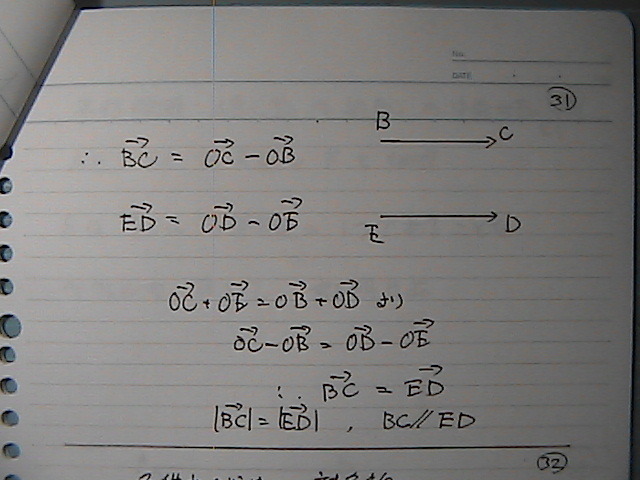 No.
DATE
㉛
B C
∴ BC⃗ = OC⃗ − OB⃗
ED⃗ = OD⃗ − OE⃗
E D
OC⃗ + OE⃗ = OB⃗ + OD⃗ より
OC⃗ − OB⃗ = OD⃗ − OE⃗
∴ BC⃗ = ED⃗
|BC⃗| = |ED⃗| , BC // ED
㉜